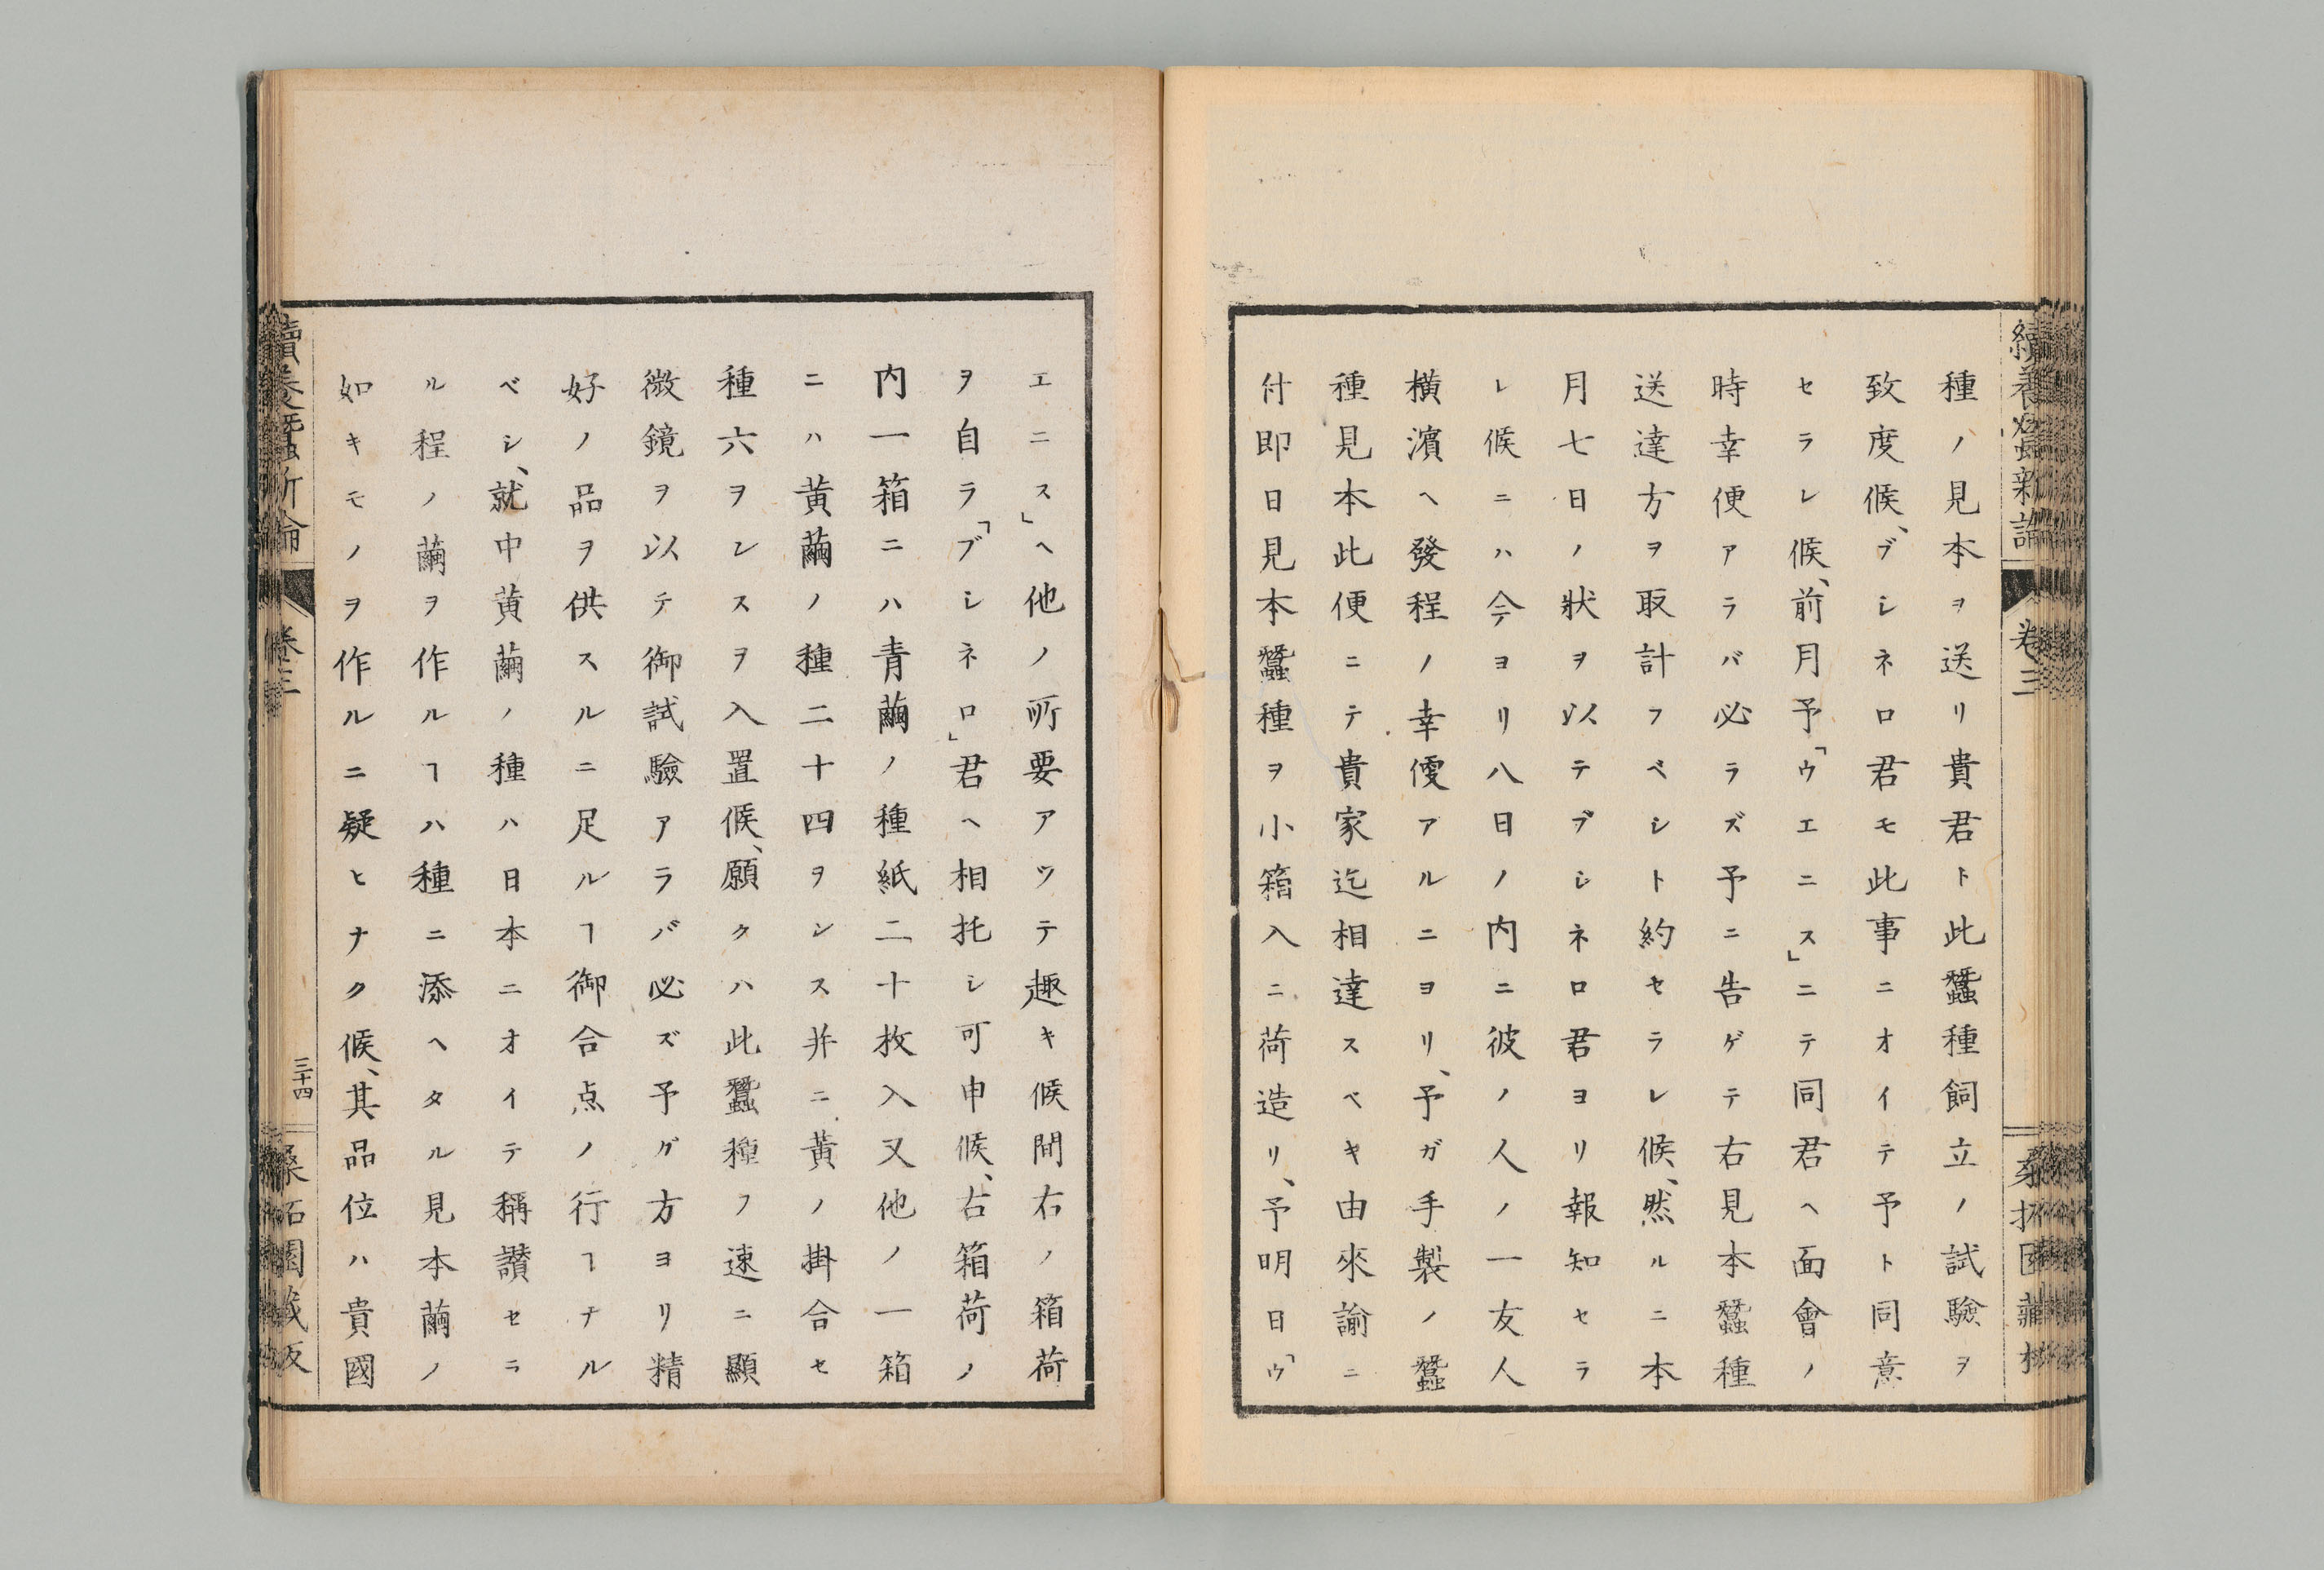 續養蠶新論
卷三
種ノ見本ヲ送リ貴君ト此蠶種飼立ノ試驗ヲ
致度候、ブシネロ君モ此事ニオイテ予ト同意
セラレ候、前月予「ウエニス」ニテ同君ヘ面會ノ
時幸便アラバ必ラズ予ニ告ゲテ右見本蠶種
送達方ヲ取計フベシト約セラレ候、然ルニ本
月七日ノ狀ヲ以テブシネロ君ヨリ報知セラ
レ候ニハ今ヨリ八日ノ内ニ彼ノ人ノ一友人
橫濱ヘ發程ノ幸便アルニヨリ、予ガ手製ノ蠶
種見本此便ニテ貴家迄相達スベキ由來諭ニ
付即日見本蠶種ヲ小箱入ニ荷造リ、予明日「ウ
エニス」ヘ他ノ所要アツテ趣キ候間右ノ箱荷
ヲ自ラ「ブシネロ」君ヘ相托シ可申候、右箱荷ノ
内一箱ニハ青繭ノ種紙二十枚入又他ノ一箱
ニハ黄繭ノ種二十四ヲンス并ニ黄ノ掛合セ
種六ヲンスヲ入置候、願クハ此蠶種ノ速ニ顯
微鏡ヲ以テ御試驗アラバ必ズ予ガ方ヨリ精
好ノ品ヲ供スルニ足ルヿ御合点ノ行ヿナル
ベシ、就中黄繭ノ種ハ日本ニオイテ稱讃セラ
ル程ノ繭ヲ作ルヿハ種ニ添ヘタル見本繭ノ
如キモノヲ作ルニ疑ヒナク候、其品位ハ貴國
卷三
三十四